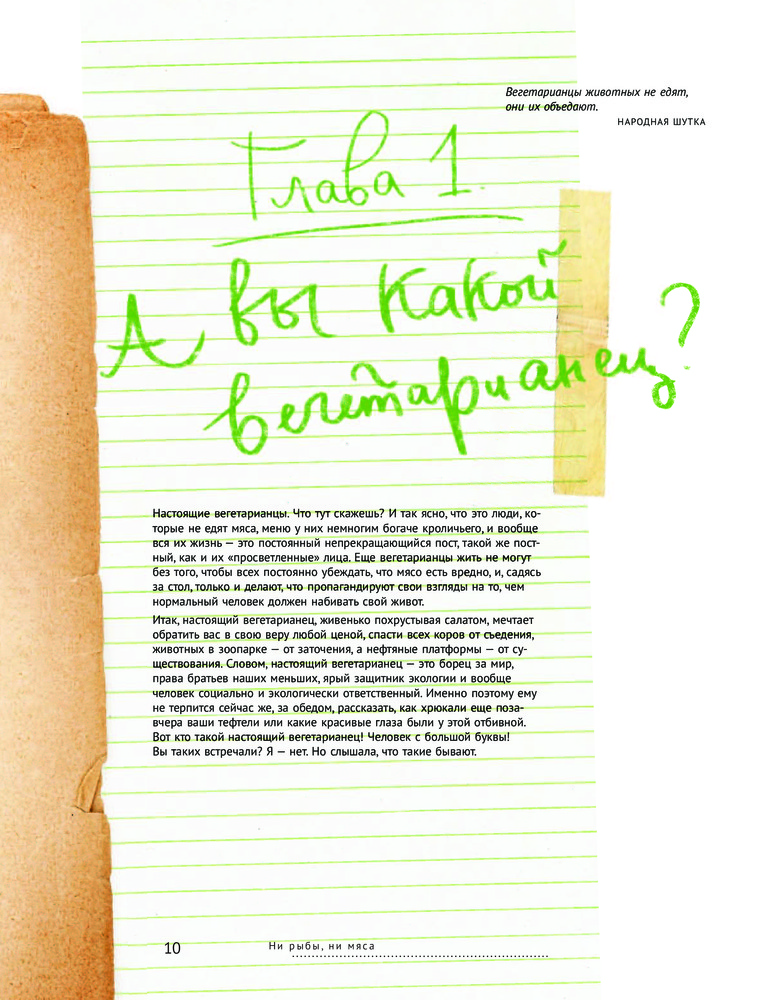 Вегетарианцы животных не едят,
они их объедают.
НАРОДНАЯ ШУТКА
Глава 1.
А вы какой
вегетарианец?
Настоящие вегетарианцы. Что тут скажешь? И так ясно, что это люди, ко-
торые не едят мяса, меню у них немногим богаче кроличьего, и вообще
вся их жизнь — это постоянный непрекращающийся пост, такой же пост-
ный, как и их «просветленные» лица. Еще вегетарианцы жить не могут
без того, чтобы всех постоянно убеждать, что мясо есть вредно, и, садясь
за стол, только и делают, что пропагандируют свои взгляды на то, чем
нормальный человек должен набивать свой живот.
Итак, настоящий вегетарианец, живенько похрустывая салатом, мечтает
обратить вас в свою веру любой ценой, спасти всех коров от съедения,
животных в зоопарке — от заточения, а нефтяные платформы — от су-
ществования. Словом, настоящий вегетарианец — это борец за мир,
права братьев наших меньших, ярый защитник экологии и вообще
человек социально и экологически ответственный. Именно поэтому ему
не терпится сейчас же, за обедом, рассказать, как хрюкали еще поза-
вчера ваши тефтели или какие красивые глаза были у этой отбивной.
Вот кто такой настоящий вегетарианец! Человек с большой буквы!
Вы таких встречали? Я — нет. Но слышала, что такие бывают.
10 Ни рыбы, ни мяса